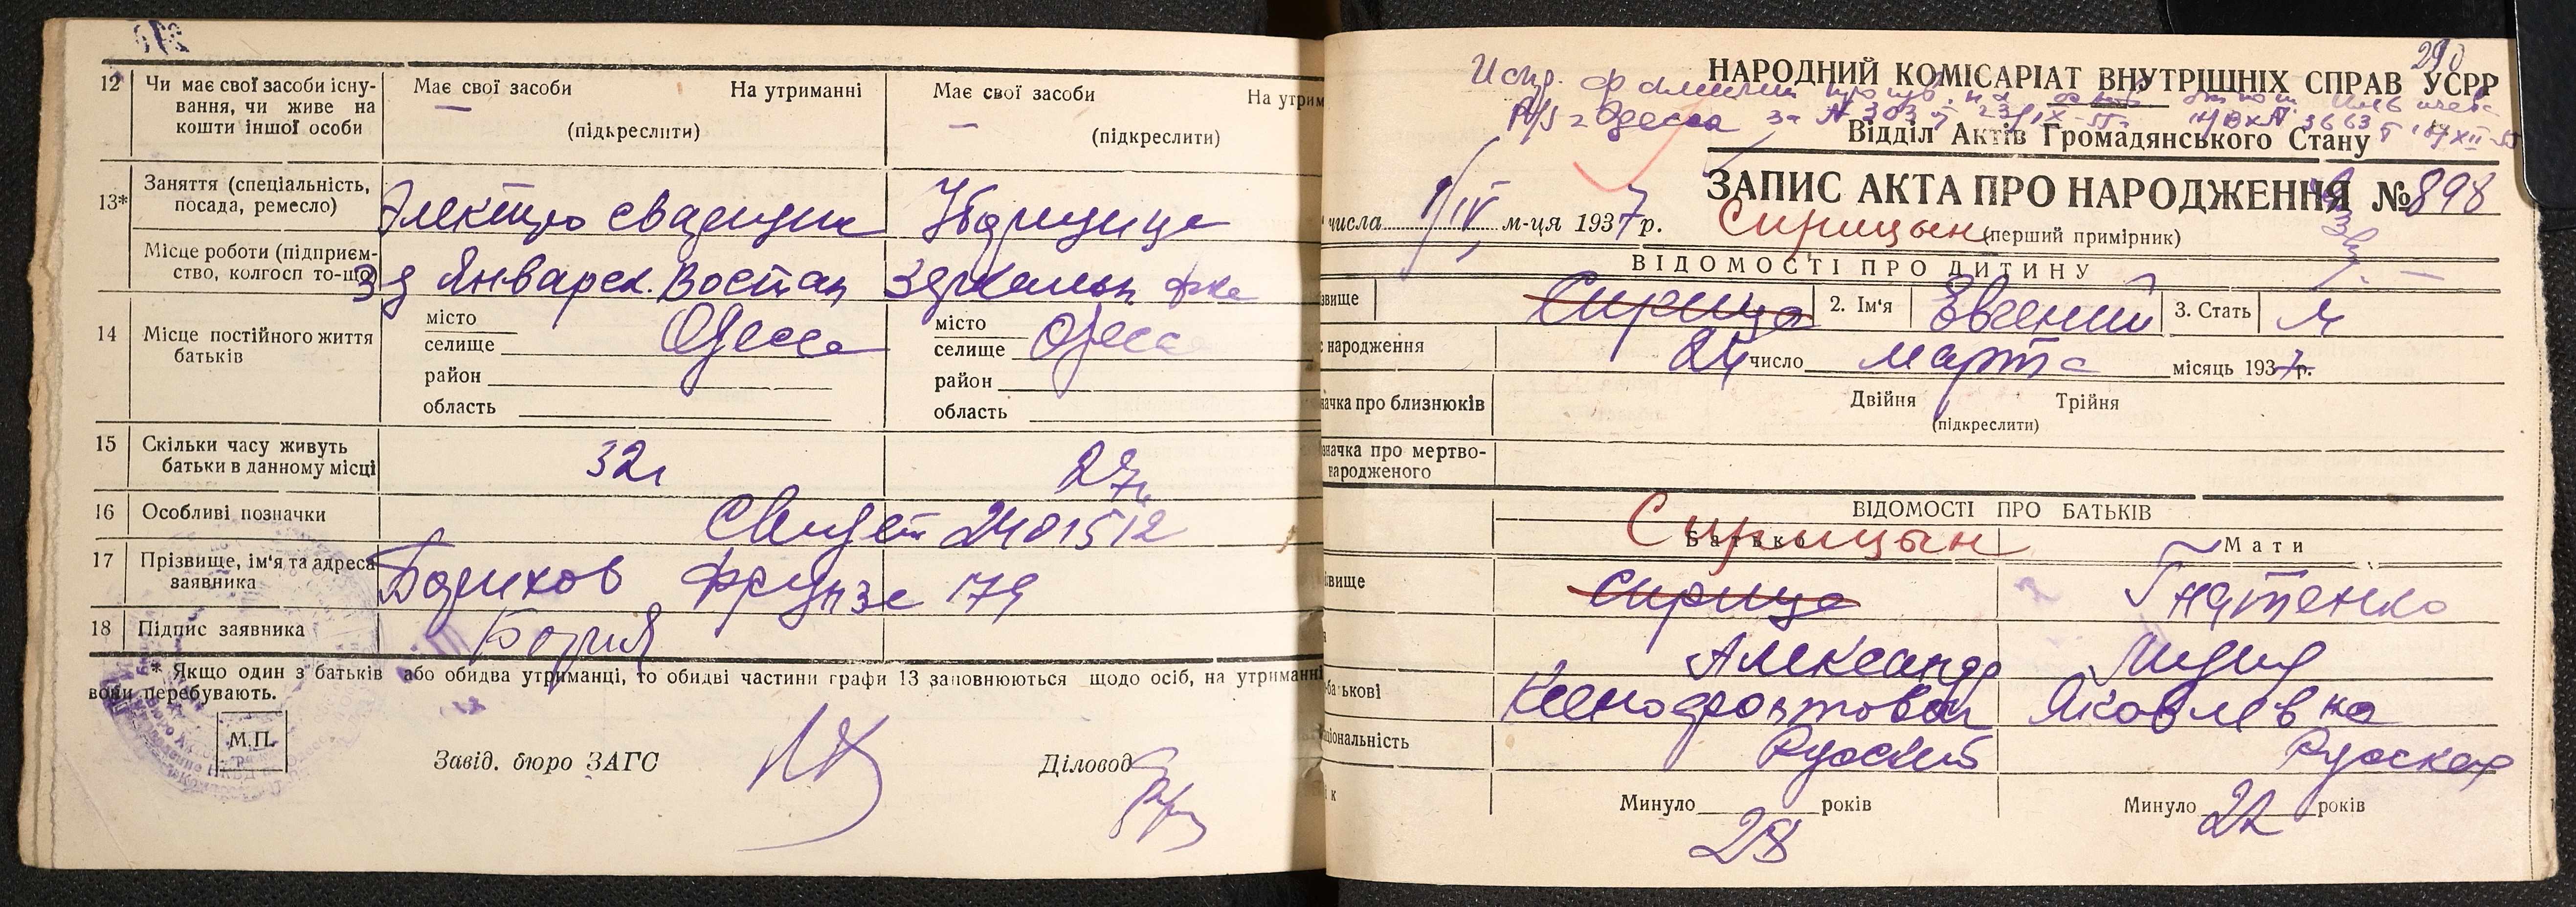 12 Чи має свої засоби існування, чи живе на кошти іншої особи
Має свої засоби — На утриманні
(підкреслити)
Має свої засоби — На утрим
(підкреслити)
13* Заняття (спеціальність, посада, ремесло)
Электро сварщик
Уборщица
Місце роботи (підприємство, колгосп то-що)
Январск. Востан
14 Місце постійного життя батьків
місто
селище Одесса
район
область
місто
селище Одесса
район
область
15 Скільки часу живуть батьки в данному місці
32 г
27 г
16 Особливі позначки
2401512
17 Прізвище, ім'я та адреса заявника
Фрунзе 179
18 Підпис заявника
* Якщо один з батьків або обидва утриманці, то обидві частини графи 13 заповнюються щодо осіб, на утриманні
вони перебувають.
М.П.
Завід. бюро ЗАГС
Діловод
290
НАРОДНИЙ КОМІСАРІАТ ВНУТРІШНІХ СПРАВ УСРР
Відділ Актів Громадянського Стану
ЗАПИС АКТА ПРО НАРОДЖЕННЯ № 898
числа 1/IV м-ця 1937 р.
Сирицын (перший примірник)
ВІДОМОСТІ ПРО ДИТИНУ
звище Сирица 2. Ім'я Евгений 3. Стать М
народження 24 число марта місяць 1937 р.
начка про близнюків
Двійня Трійня
(підкреслити)
начка про мертвонародженого
ВІДОМОСТІ ПРО БАТЬКІВ
Сирицын
Батько Мати
звище Сирица Гнатенко
Александр Лидия
-батькові Ксенофонтович Яковлевна
ціональність Руский Руская
ік
Минуло 28 років
Минуло 22 років